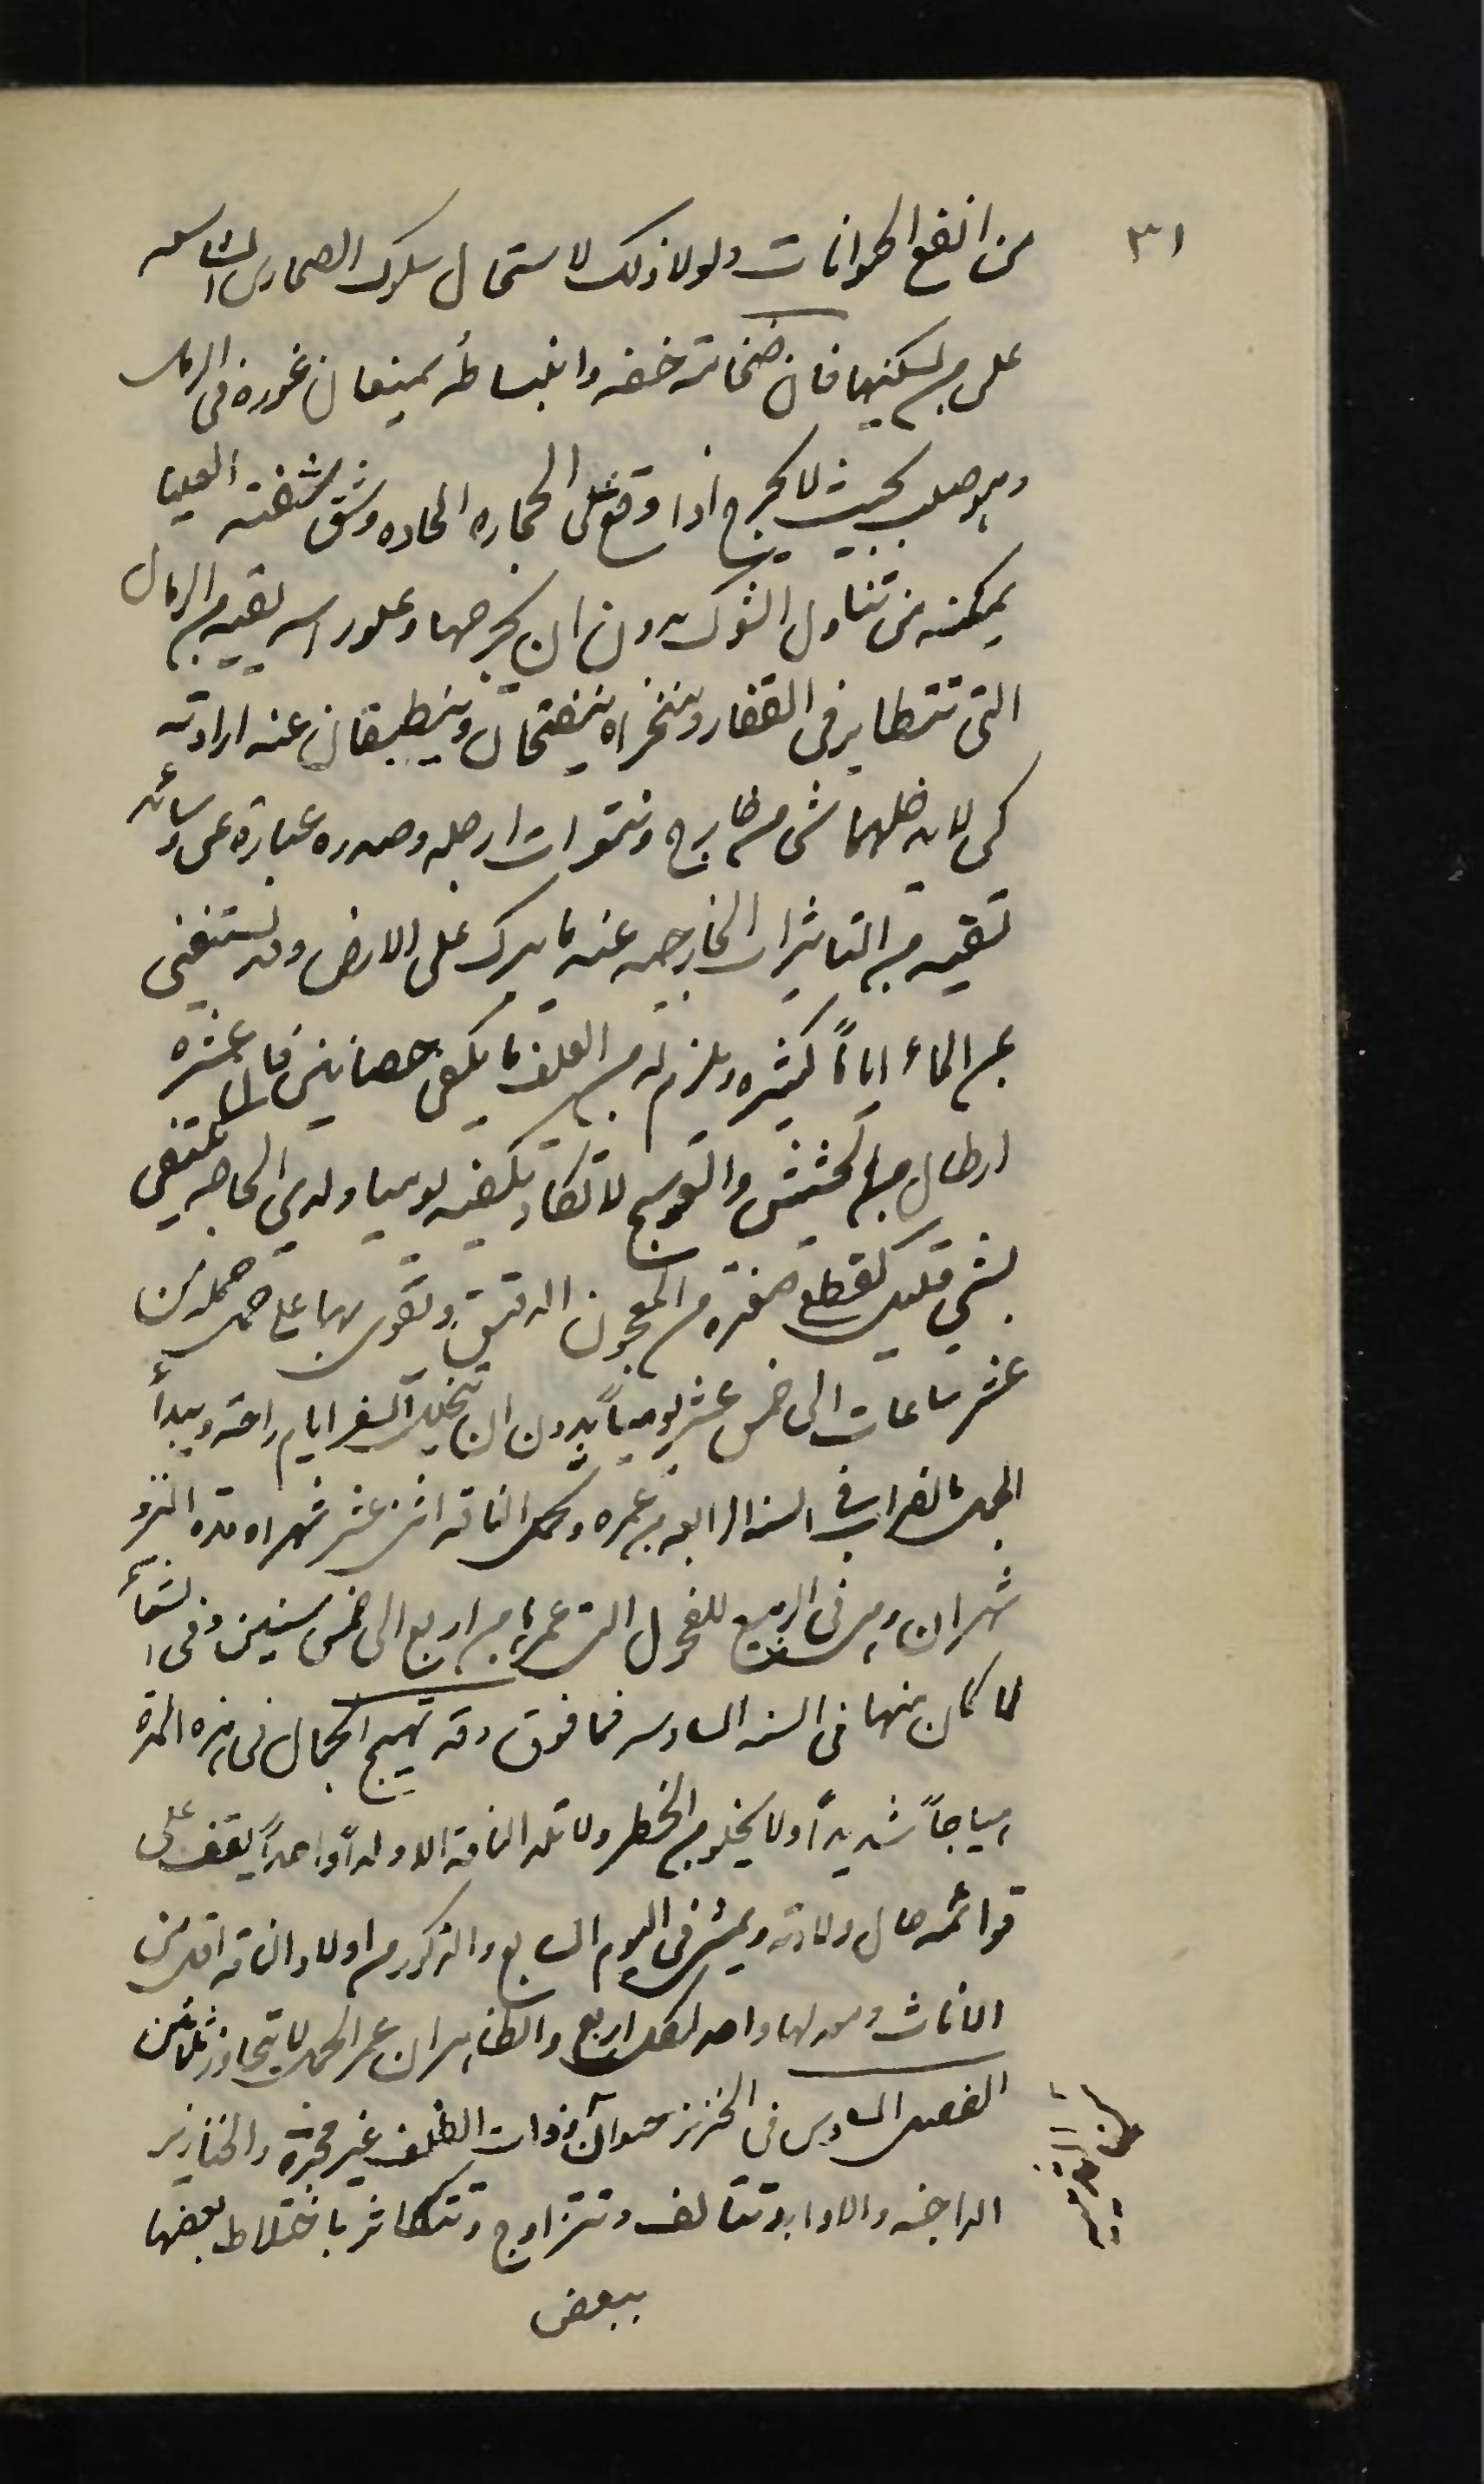 ٣١
من انفع الحيوانات ولولا ذلك لاستحال سلوك الصحارى الشاسعه
على من يسكنها فان ضخامة خفه وانبساطه يمنعان غوره فى الرمال
وهو صلب بحيث لا يجرح اذا وقع على الحجاره الحاده وشق شفته العليا
يمكنه من تناول الشوك بدون ان يجرحها وعلو راسه يقيه من الرمال
التى تتطاير فى القفار ومنخراه ينفتحان وينطبقان عند ارادته
كى لا يدخلهما شى من خارج ونتوات ارجله وصدره عبارة عن وسائد
تقيه من التاثيرات الخارجيه عند ما يبرك على الارض وقد يستغنى
عن الماء اياماً كثيره ويلزم له من العلف ما يكفى حصانين فالعشره
ارطال من الحشيش والعوسج لا تكاد تكفيه يوميا ولدى الحاجه يكتفى
بشي قليل كقطع صغيره من المعجون الدقيق ويقوى بها على حمل حمله من
عشر ساعات الى خمس عشر يومياً بدون ان يتخلل السفر ايام راحه ويبدأ
الجمل بالضراب فى السنه الرابعه من عمره وتحمل الناقه اثنى عشر شهرا ومدة النزو
شهران وهى فى الربيع للفحول التى عمرها من اربع الى خمس سنين وفى الشتاء
لما كان منها فى السنه السادسه فما فوق وقد تهيج الجمال فى هذه المدة
هياجاً شديداً ولا يخلو من الخطر ولا تلد الناقه الا ولداً واحداً يقف على
قوائمه حال ولادته ويمشى فى اليوم السابع والذكور من اولاد الناقه اقل من
الاناث ومعدلها واحد لكل اربع والظاهر ان عمر الجمل لا يتجاوز ثلاثين
الفصل السادس فى الخنزير حيوان من ذوات الظلف غير مجترة والخنازير
الداجنه والاوابد تتآلف وتتزاوج وتتكاثر باختلاط بعضها
ببعض